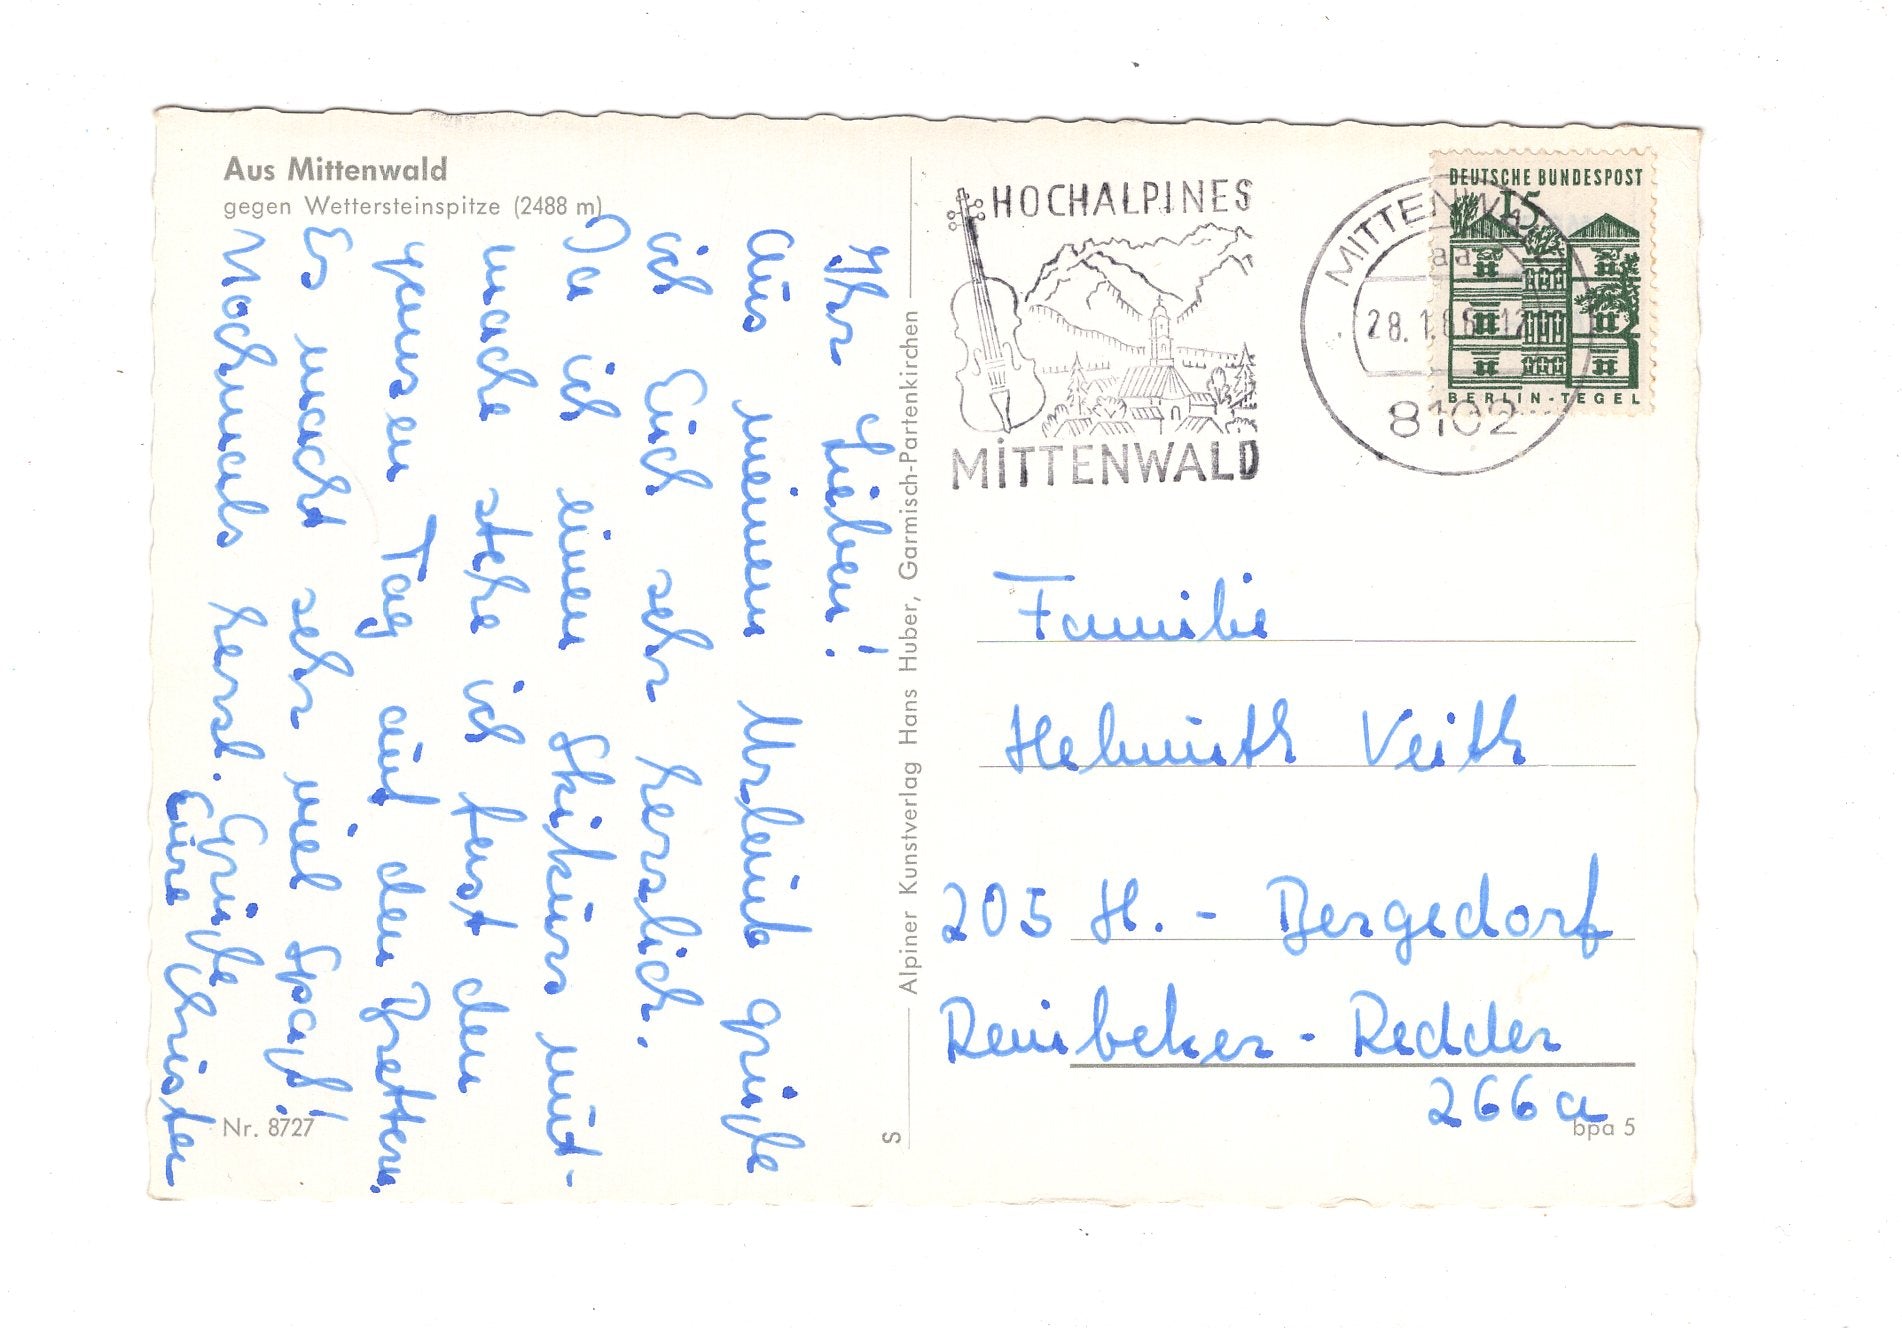 Aus Mittenwald
gegen Wettersteinspitze (2488 m)
Ihr Lieben!
Aus meinem Urlaub grüße
ich Euch sehr herzlich.
Da ich einen Skikurs mit-
mache stehe ich fast den
ganzen Tag auf den Brettern.
Es macht sehr viel Spaß!
Nochmals herzl. Grüße
Eure Christen
Nr. 8727
Alpiner Kunstverlag Hans Huber, Garmisch-Partenkirchen
S
HOCHALPINES
MITTENWALD
DEUTSCHE BUNDESPOST
15
BERLIN-TEGEL
MITTENWALD
aa
28.1.66-12
8102
Familie
Helmuth Veith
205 H.-Bergedorf
Reinbeker-Redder
266a
bpa 5